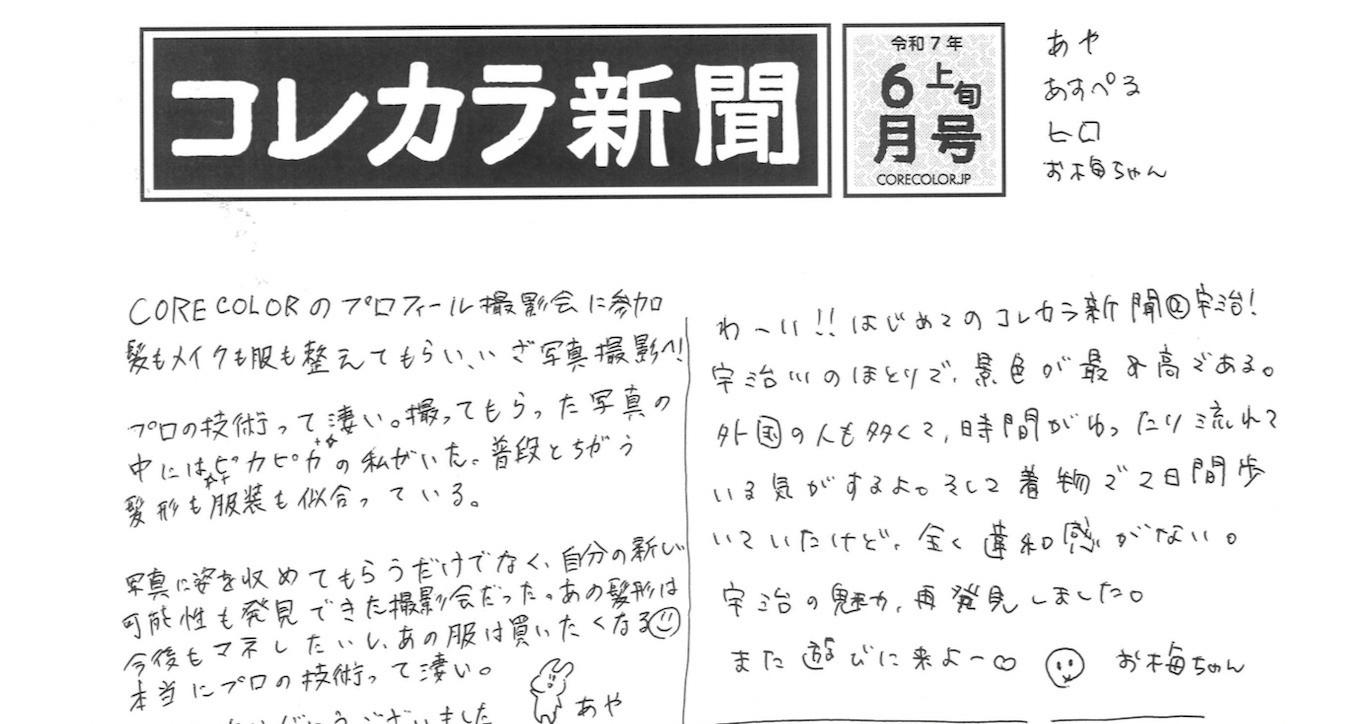 コレカラ新聞
令和7年
6月上旬号
CORECOLOR.JP
あや
あすぺる
ヒロ
お梅ちゃん
CORECOLORのプロフィール撮影会に参加
髪もメイクも服も整えてもらい、いざ写真撮影へ!
プロの技術って凄い。撮ってもらった写真の
中にはピカピカの私がいた。普段とちがう
髪形も服装も似合っている。
写真に姿を収めてもらうだけでなく、自分の新しい
可能性も発見できた撮影会だった。あの髪形は
今後もマネしたいし、あの服は買いたくなる
本当にプロの技術って凄い。
ございました
あや
わーい!!はじめてのコレカラ新聞@宇治!
宇治川のほとりで、景色が最高である。
外国の人も多くて、時間がゆったり流れて
いる気がするよ。そして着物で2日間歩
いていたけど、全く違和感がない。
宇治の魅力、再発見しました。
また遊びに来よー♡
お梅ちゃん